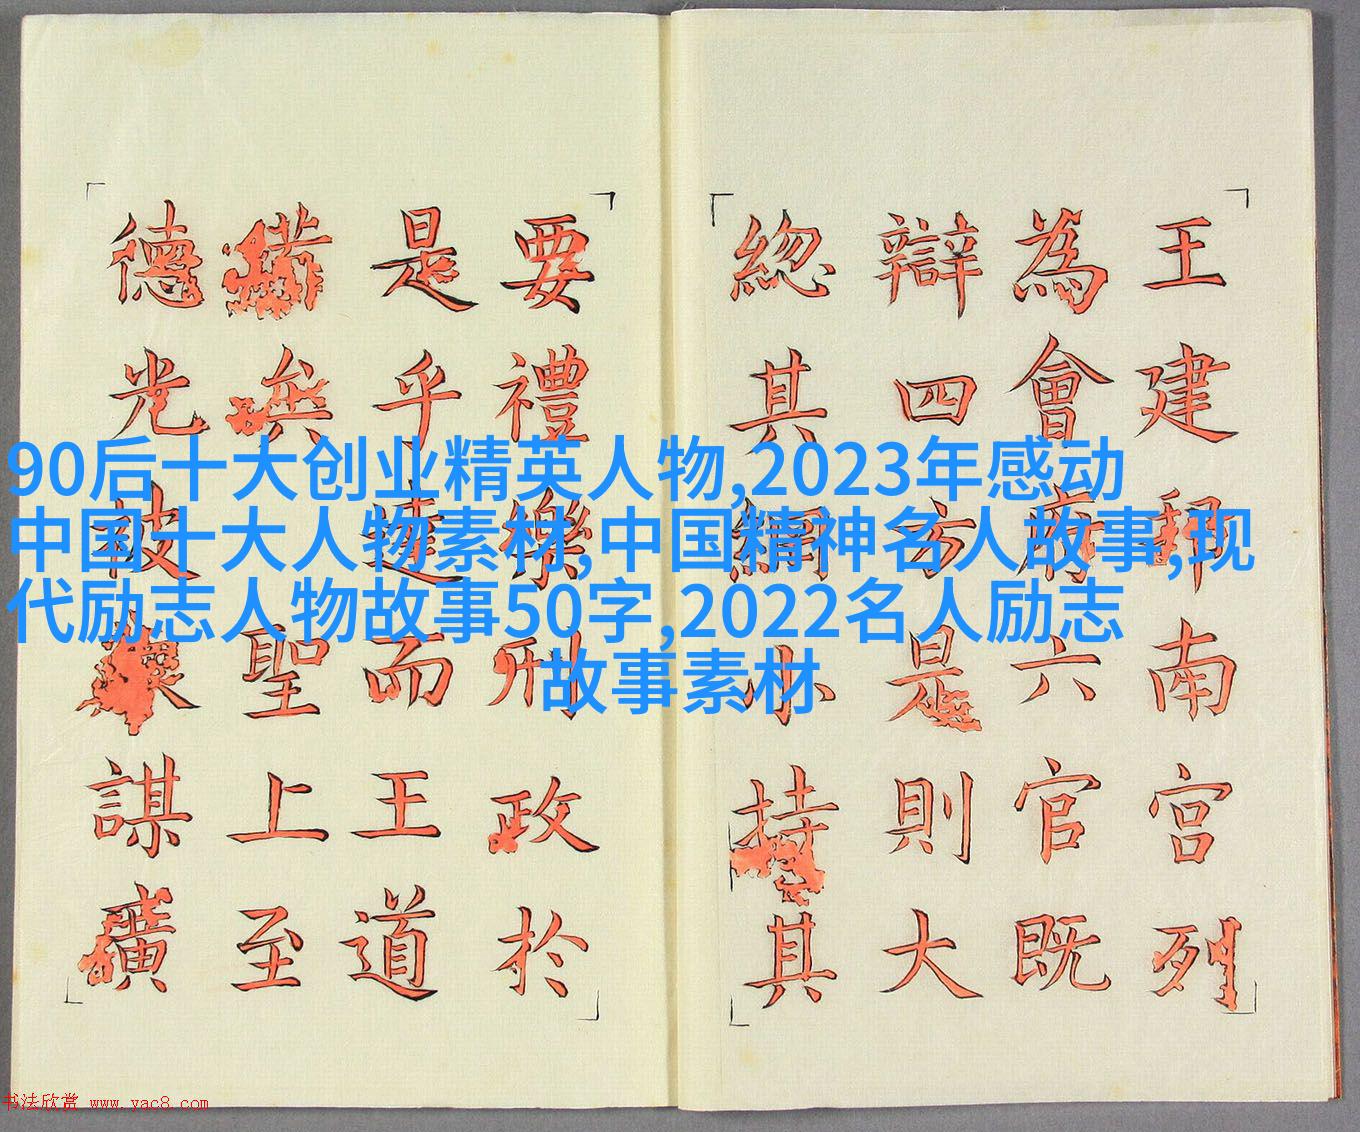 王建南宮列
為會府六官既
辯四方是則大
緫其綱小持其
要禮樂刑政於
是乎達而王道
備矣聖上至
德光被謀
90后十大创业精英人物,2023年感动
中国十大人物素材,中国精神名人故事,现
代励志人物故事50字,2022名人励志
故事素材
书法欣赏 www.yac8.com